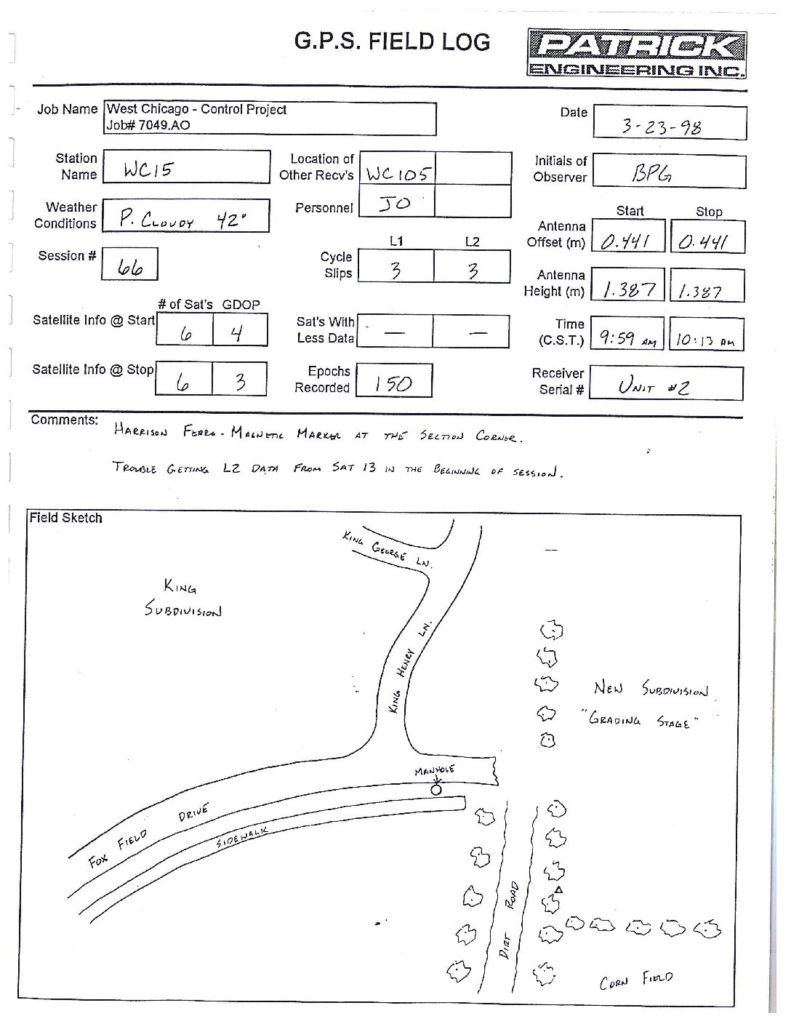 G.P.S. FIELD LOG
PATRICK
ENGINEERING INC.
Job Name West Chicago - Control Project
Job# 7049.AO
Date 3-23-98
Station Name WC15
Location of Other Recv's WC105
Initials of Observer BPG
Weather Conditions P. CLOUDY 42°
Personnel JO
Start Stop
Antenna Offset (m) 0.441 0.441
Session # 66
L1 L2
Cycle Slips 3 3
Antenna Height (m) 1.387 1.387
# of Sat's GDOP
Satellite Info @ Start 6 4
Sat's With Less Data — —
Time (C.S.T.) 9:59 AM 10:13 AM
Satellite Info @ Stop 6 3
Epochs Recorded 150
Receiver Serial # UNIT #2
Comments: HARRISON FERRO-MAGNETIC MARKER AT THE SECTION CORNER.
TROUBLE GETTING L2 DATA FROM SAT 13 IN THE BEGINNING OF SESSION.
Field Sketch
KING GEORGE LN.
KING
SUBDIVISION
KING HENRY LN.
NEW SUBDIVISION
"GRADING STAGE"
MANHOLE
FOX FIELD DRIVE
SIDEWALK
DIRT ROAD
CORN FIELD